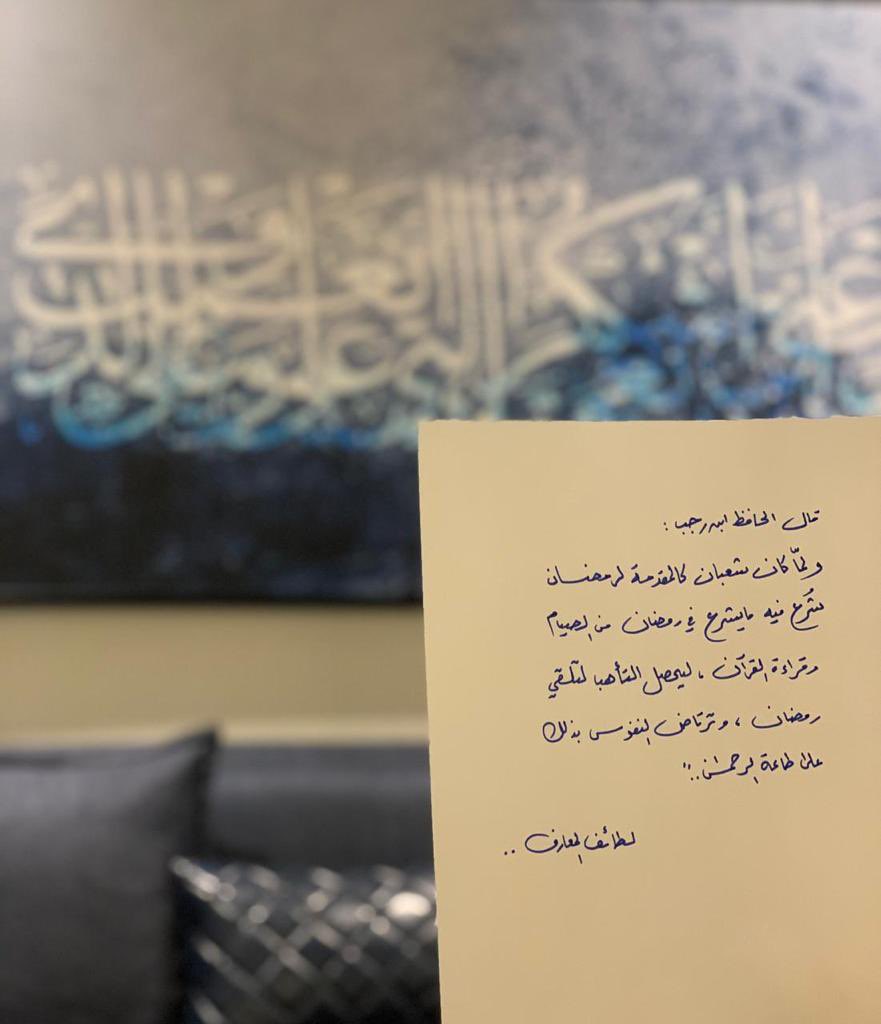 قال الحافظ ابن رجب :
ولمّا كان شعبان كالمقدمة لرمضان
شُرع فيه مايشرع في رمضان من الصيام
وقراءة القرآن ، ليحصل التأهب لتلقي
رمضان ، وترتاض النفوس بذلك
على طاعة الرحمٰن .. "
لطائف المعارف ..